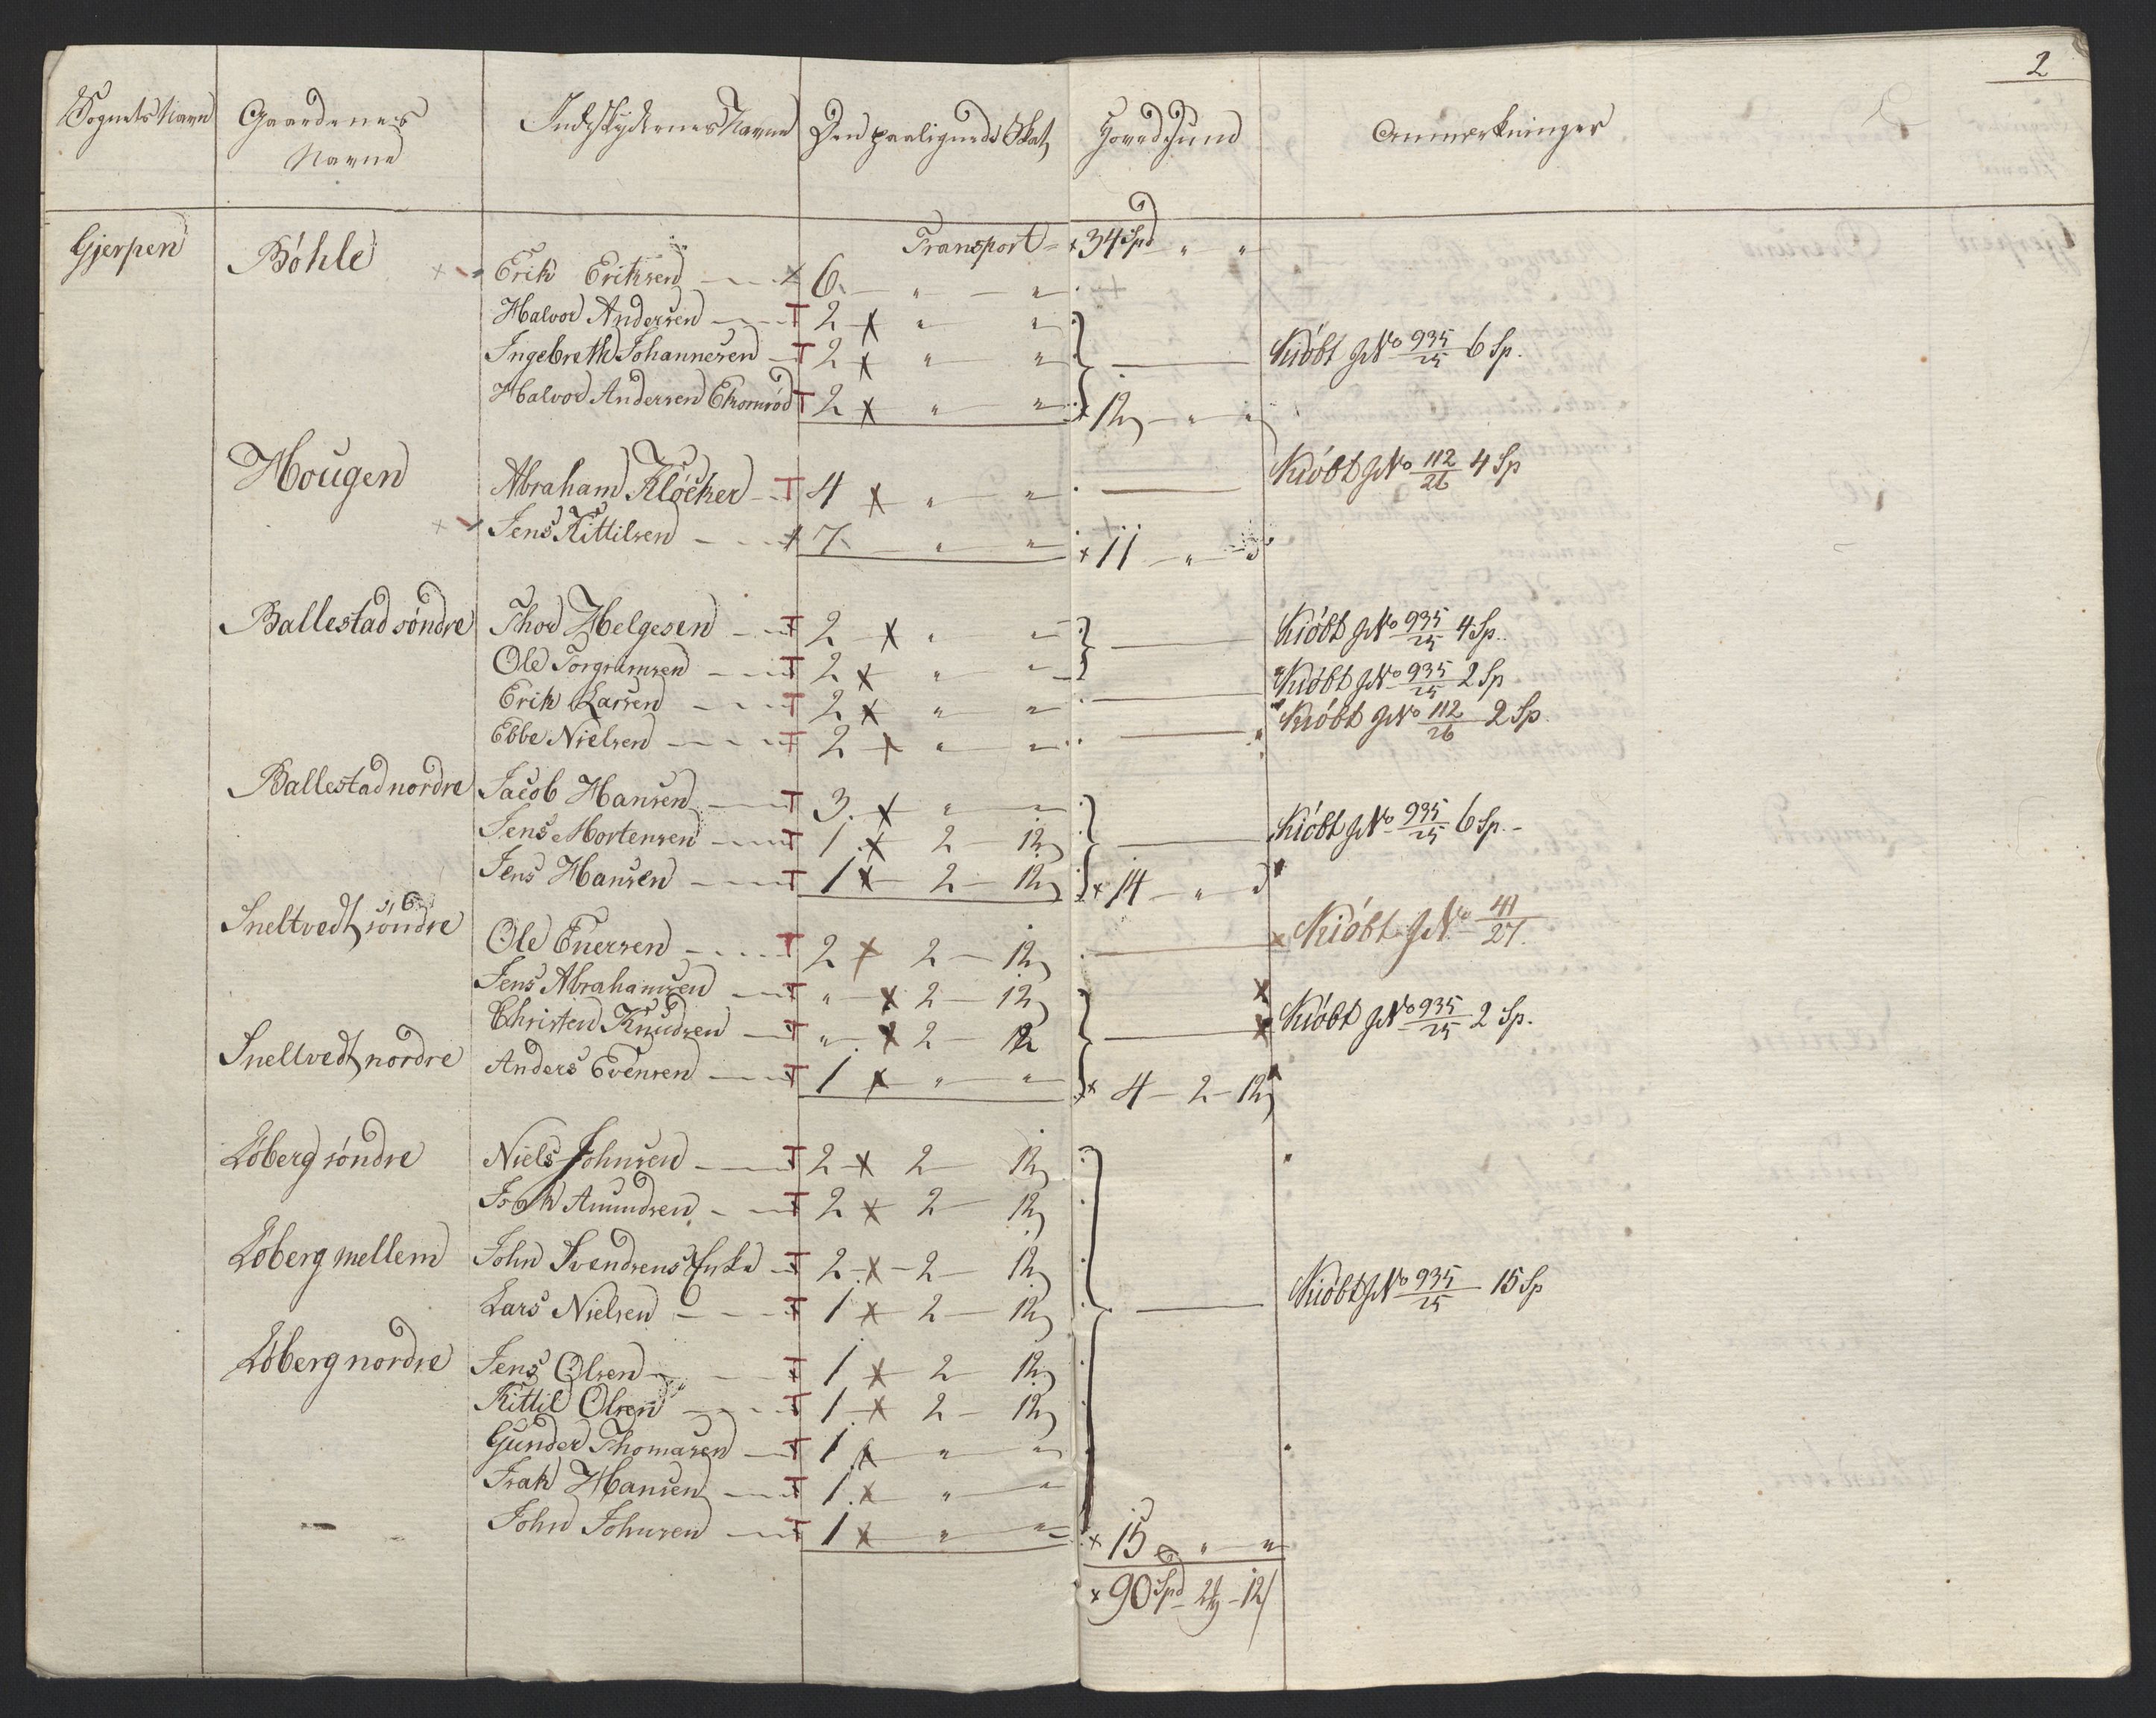 2
Sognets Navn Gaardenes Navne Indskydernes Navne Den paalignede Skat Hoved Sum Anmærkninger
Transport = × 34 Spd " "
Gjerpen Böhle Erik Eriksen 6 " "
Halvor Andersen T 2 × " "
Ingebreth Johannesen T 2 × " " Kiöbt No 935/25 6 Sp.
Halvor Andersen T 2 × " " × 12 " "
Hougen Abraham Klöcker T 4 × " " Kiöbt No 112/26 4 Sp
Jens Kittilsen 7 " " × 11 "
Ballestad söndre Thor Helgesen T 2 × " " Kiöbt No 935/25 4 Sp.
Ole Torgrimsen T 2 × " "
Erik Larsen T 2 × " " Kiöbt No 935/25 2 Sp
Ebbe Nielsen T 2 × " " Kiöbt No 112/26 2 Sp.
Ballestad nordre Jacob Hansen T 3 × " "
Jens Mortensen T 1 × 2 12 Kiöbt No 935/25 6 Sp.
Jens Hansen T 1 × 2 12 × 14 "
Sneltvedt söndre Ole Enersen T 2 × 2 12 × Kiöbt No 41/27.
Jens Abrahamsen T " × 2 12 ×
Christen Knudsen T " × 2 12 × Kiöbt No 935/25 2 Sp.
Sneltvedt nordre Anders Evensen T 1 × " " × 4 2 12
Löberg söndre Niels Johnsen T 2 × 2 12
Isak Amundsen T 2 × 2 12
Löberg mellem John Svendsens Enke T 2 × 2 12
Lars Nielsen T 1 × 2 12 Kiöbt No 935/25 15 Sp
Löberg nordre Jens Olsen T 1 × 2 12
Kittil Olsen T 1 × 2 12
Gunder Thomasen T 1 × " "
Isak Hansen T 1 × " "
John Johnsen T 1 × " " × 15 " "
× 90 Spd 2 12